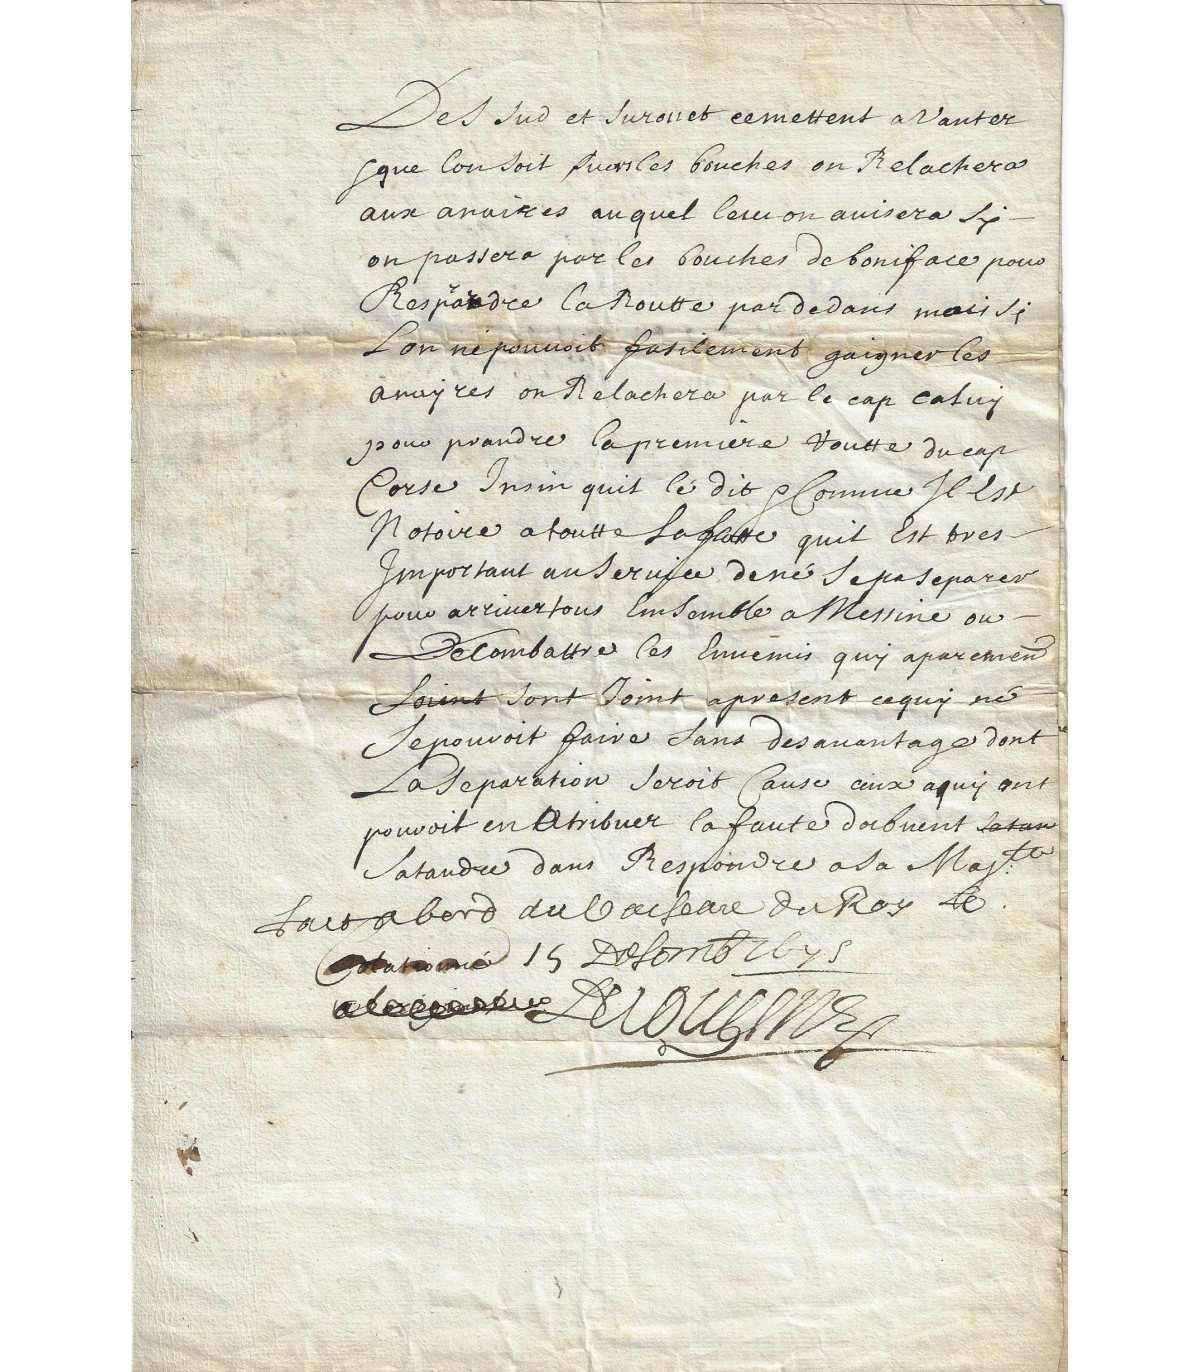 Des Sud et Surouet cemettent a Vanter
que lon soit sur les bouches on Relachera
aux anaires auquel lieu on avisera Sy
on passera par les bouches de boniface pour
Resprandre la Routte par dedans mais Si
Lon ne pouvoit fasilement gaigner les
anayres on Relachera par le cap caluy
pour prandre la premiere Routte du cap
Corse Insin quil lé dit Comme Il Est
Notoire a toutte La flotte quil Est tres
Important au Service de né Se pa Separer
pour arriver tous Ensemble a Messine ou
De Combattre les Ennemis quy aparemend
Soient Sont Joint apresent ce quy né
Se pouvoit faire Sans desavantage dont
La Separation Seroit Cause ceux a quy ont
pouvoit en Atribuer la faute doibuent Satan
Satandre dans Respondre a Sa Majte
Fait a bord du Vaiseare du Roy Le
15 Desomb 1675
DeRelingue